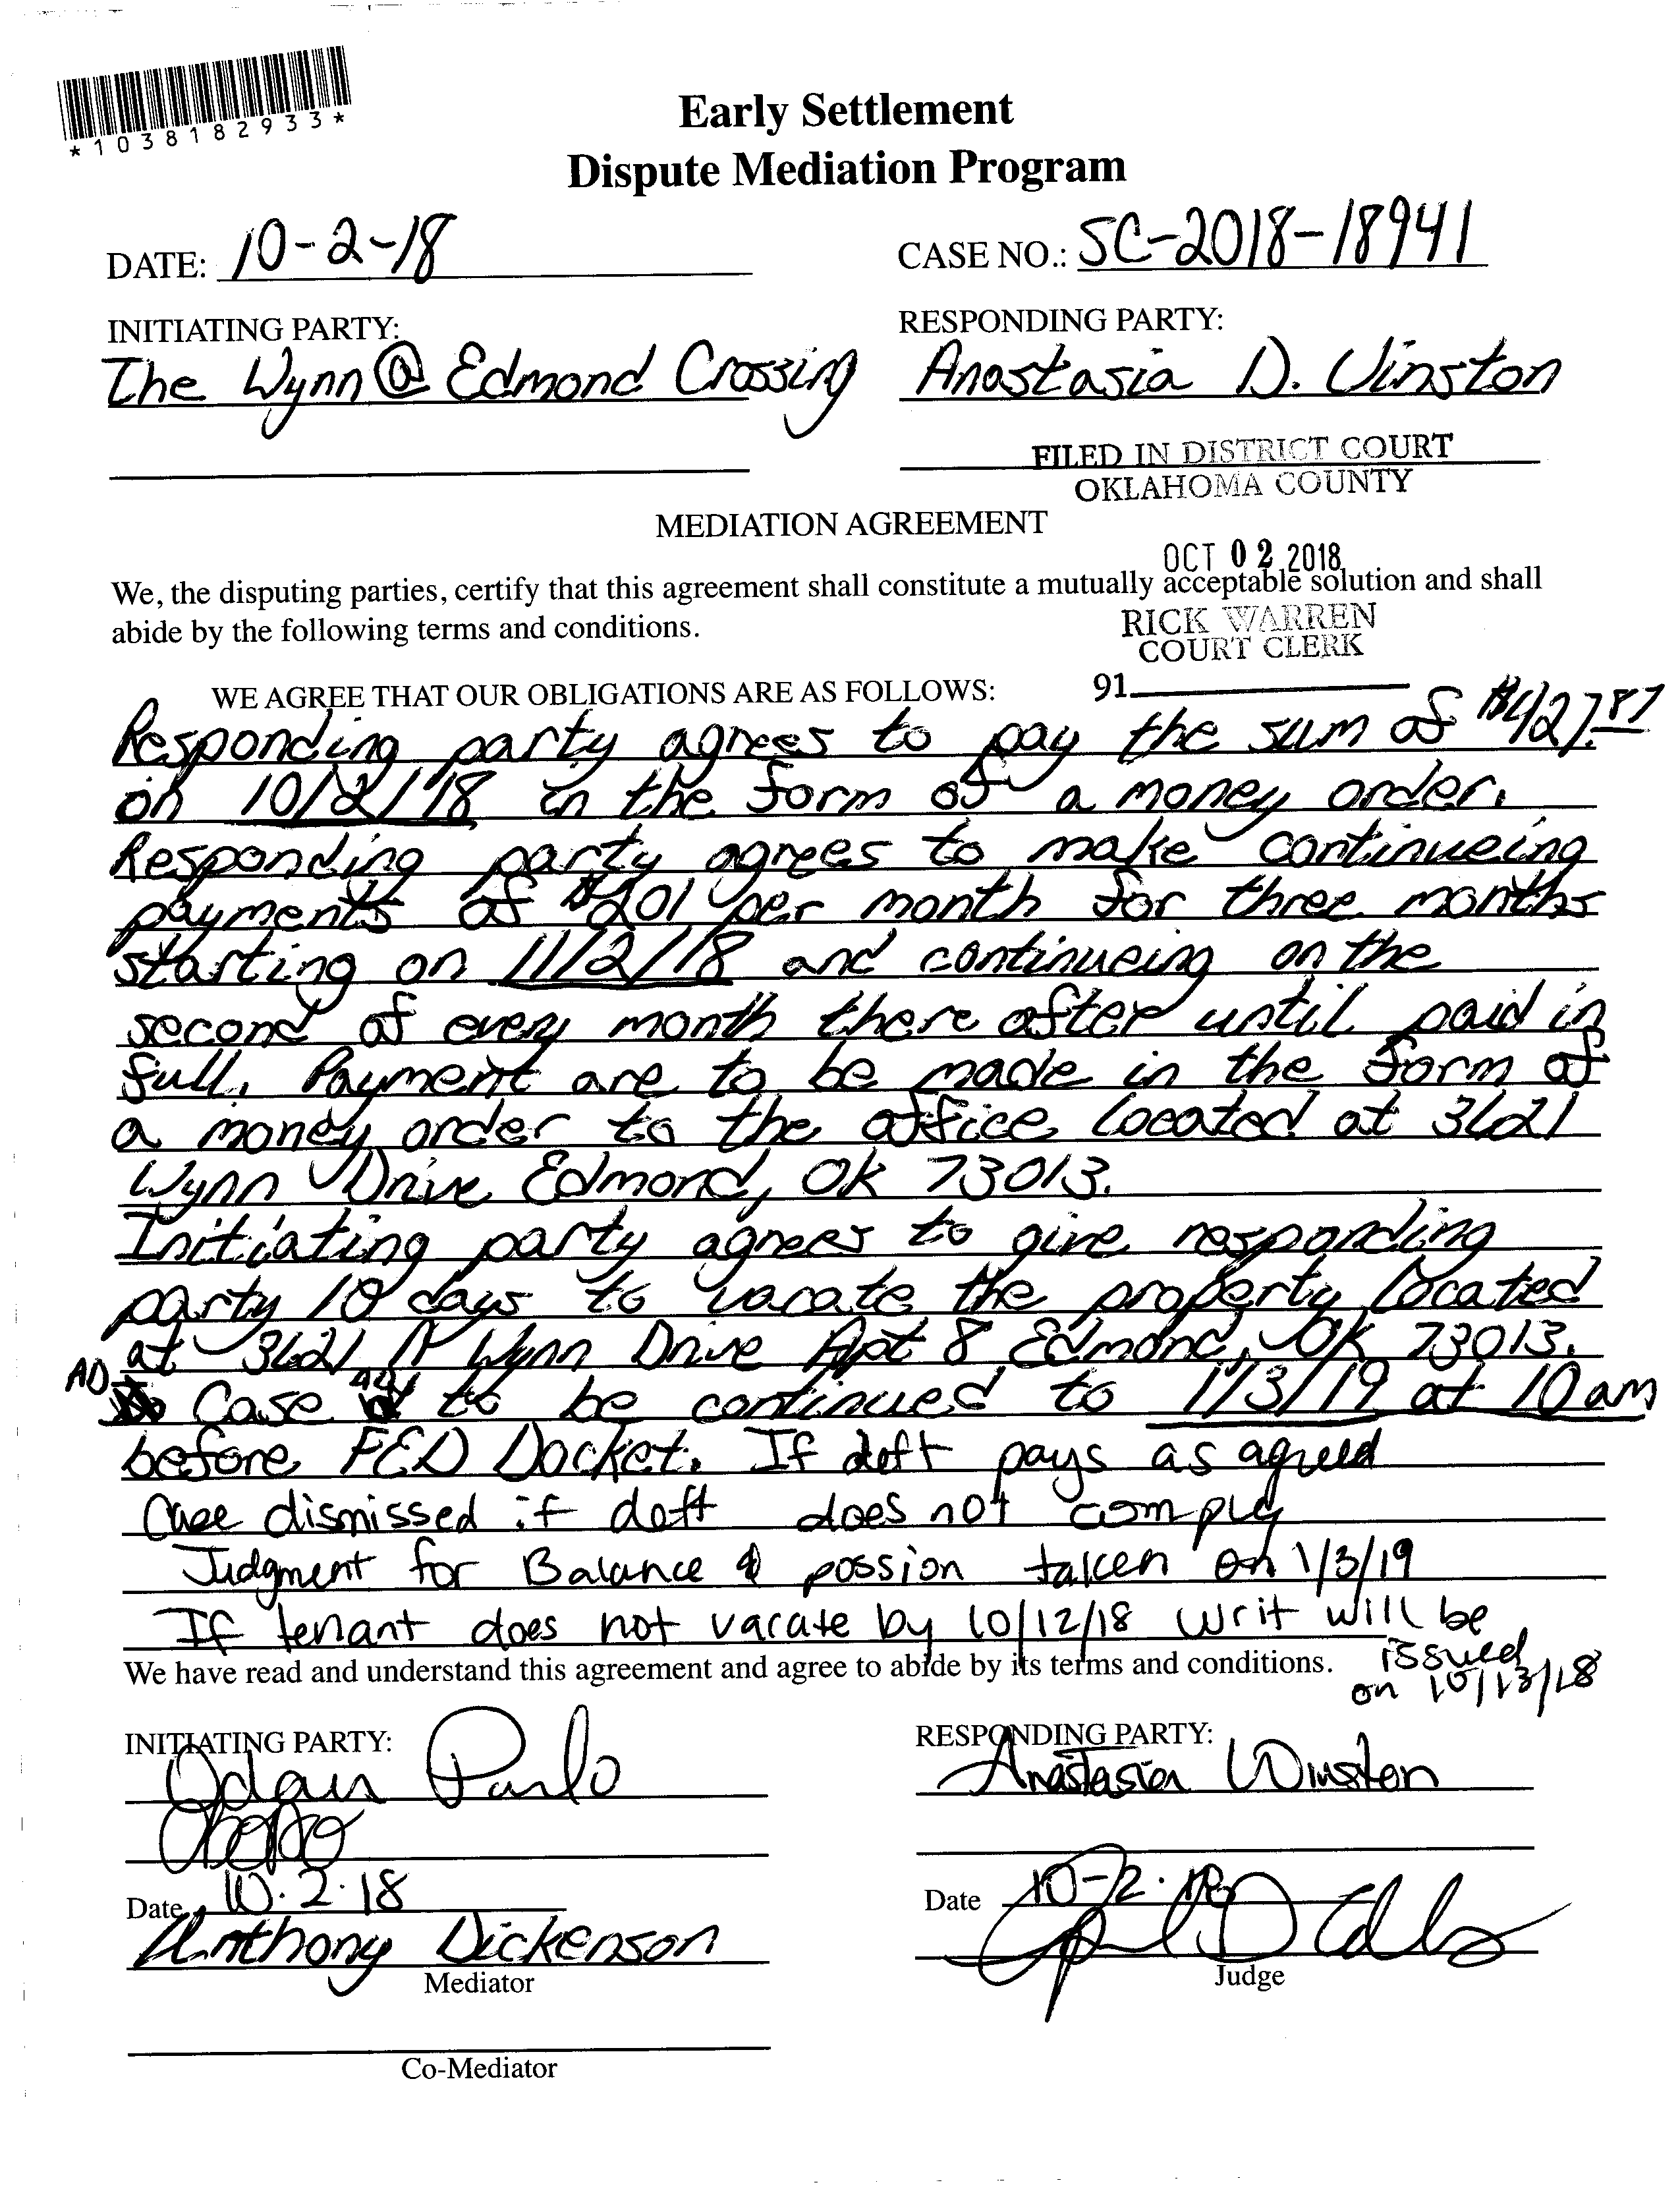 *1038182933*
Early Settlement
Dispute Mediation Program
DATE: 10-2-18
CASE NO.: SC-2018-18941
INITIATING PARTY:
RESPONDING PARTY:
The Wynn @ Edmond Crossing
Anastasia D. Winston
FILED IN DISTRICT COURT
OKLAHOMA COUNTY
MEDIATION AGREEMENT
OCT 02 2018
We, the disputing parties, certify that this agreement shall constitute a mutually acceptable solution and shall
abide by the following terms and conditions.
RICK WARREN
COURT CLERK
91
WE AGREE THAT OUR OBLIGATIONS ARE AS FOLLOWS:
Responding party agrees to pay the sum of $427.87
on 10/2/18 in the form of a money order.
Responding party agrees to make continueing
payments of $201 per month for three months
starting on 11/2/18 and continueing on the
second of every month there after until paid in
full. Payment are to be made in the form of
a money order to the office located at 3621
Wynn Drive Edmond, OK 73013.
Initiating party agrees to give responding
party 10 days to vacate the property located
at 3621 Wynn Drive Apt 8 Edmond, OK 73013.
AD Case to be continued to 1/3/19 at 10 am
before FED Docket. If deft pays as agreed
Case dismissed if deft does not comply
Judgment for Balance & possion taken on 1/3/19
If tenant does not vacate by 10/12/18 writ will be
issued
on 10/13/18
We have read and understand this agreement and agree to abide by its terms and conditions.
INITIATING PARTY:
RESPONDING PARTY:
Anastasia Winston
Date 10.2.18
Date 10-2-18
Anthony Dickenson
Mediator
Judge
Co-Mediator